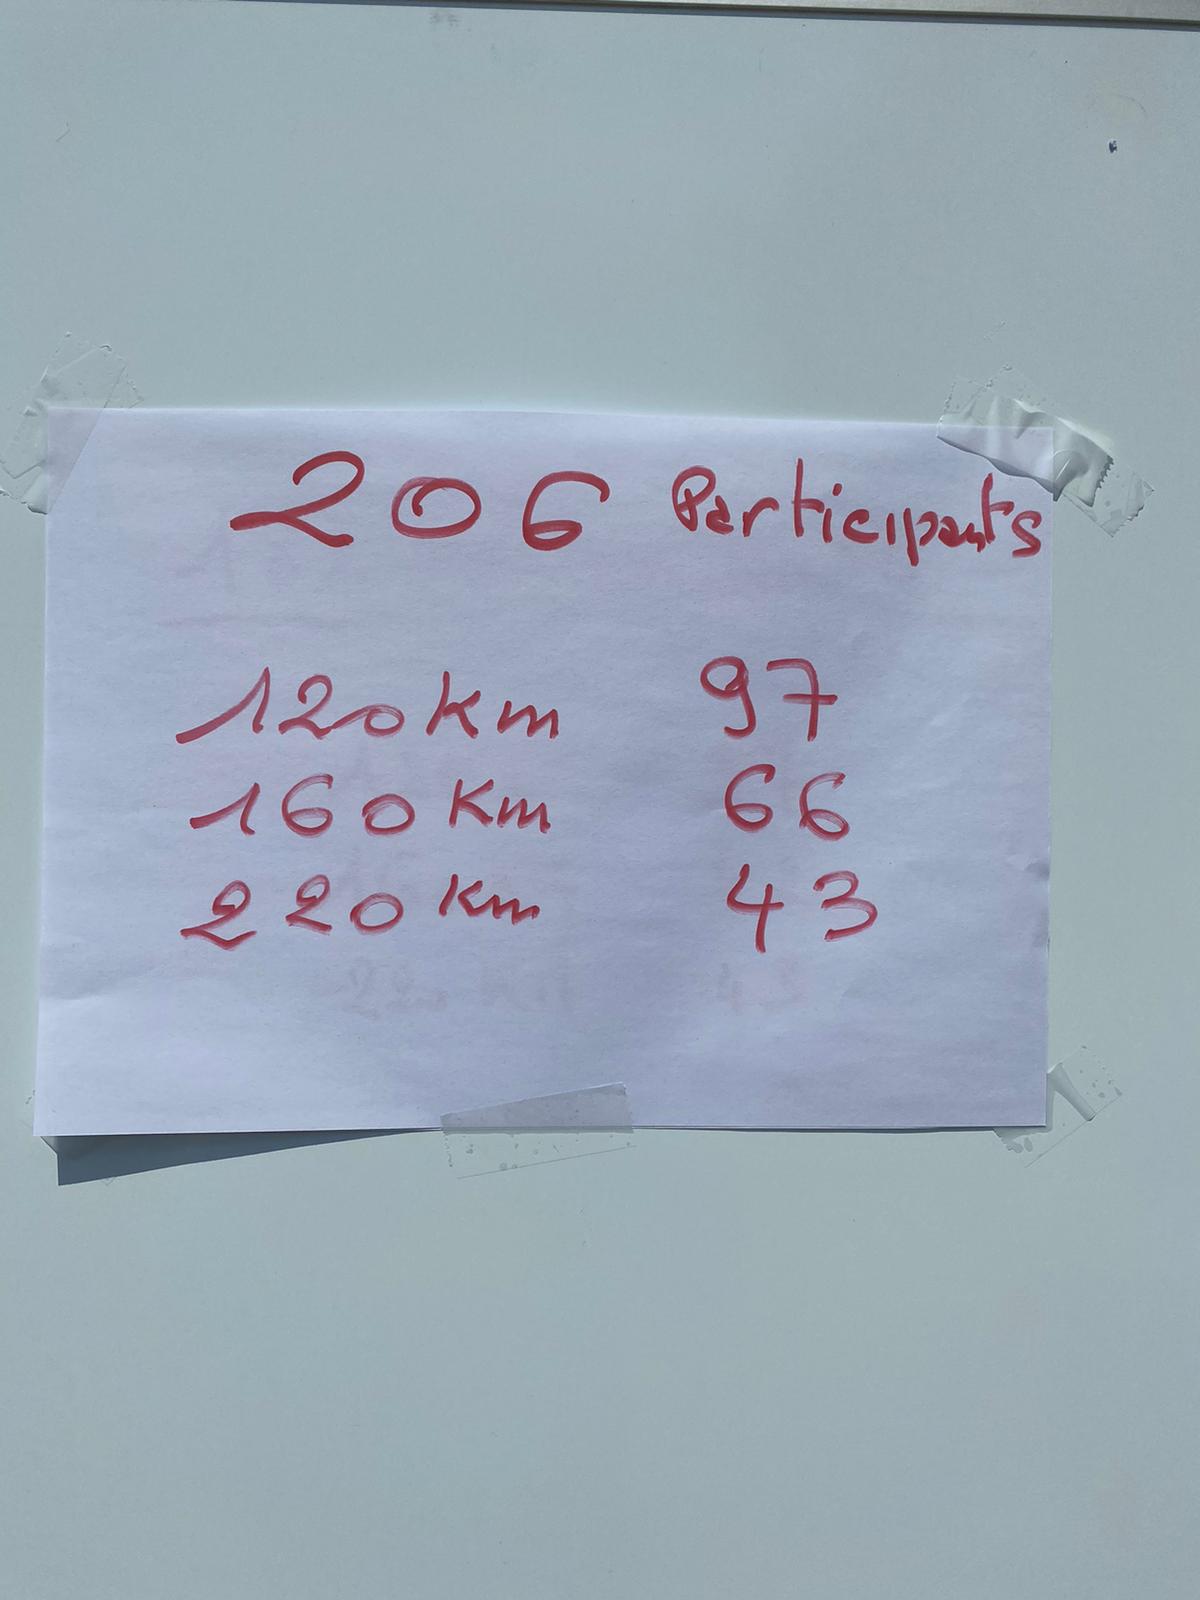 206 Participants
120 km 97
160 Km 66
220 Km 43